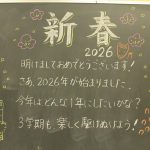 新春
2026
明けましておめでとうございます!
さあ、2026年が始まりました。
今年はどんな1年にしたいかな?
3学期も、楽しく駆けぬけよう!